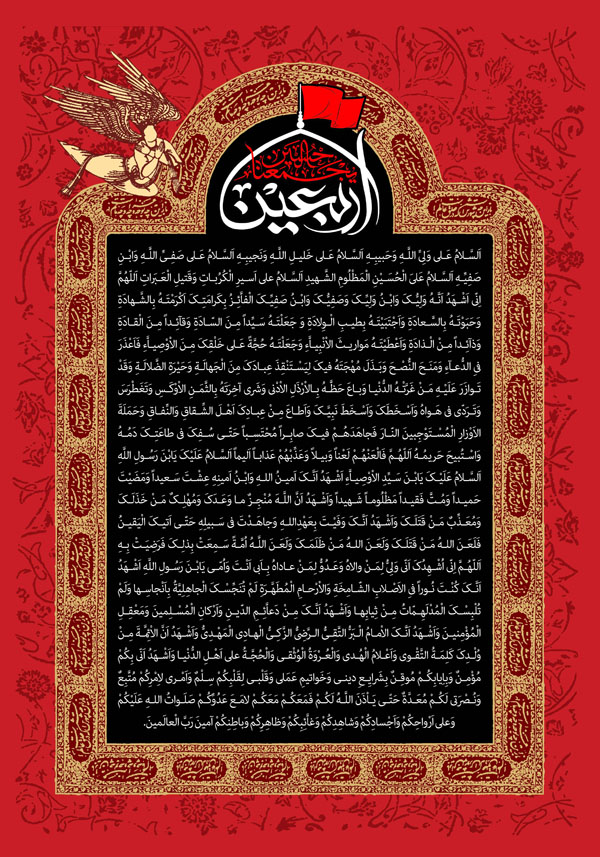 الحسین
یجمعنا
اربعین
اَلسَّلامُ عَلى وَلِیِّ اللَّهِ وَحَبیبِهِ اَلسَّلامُ عَلى خَلیلِ اللَّهِ وَنَجیبِهِ اَلسَّلامُ عَلى صَفِیِّ اللَّهِ وَابْنِ
صَفِیِّهِ اَلسَّلامُ عَلىَ الْحُسَیْنِ الْمَظْلُومِ الشَّهیدِ اَلسَّلامُ على اَسیرِ الْکُرُباتِ وَقَتیلِ الْعَبَراتِ اَللّهُمَّ
اِنّى اَشْهَدُ اَنَّهُ وَلِیُّکَ وَابْنُ وَلِیِّکَ وَصَفِیُّکَ وَابْنُ صَفِیِّکَ الْفاَّئِزُ بِکَرامَتِکَ اَکْرَمْتَهُ بِالشَّهادَةِ
وَحَبَوْتَهُ بِالسَّعادَةِ وَاَجْتَبَیْتَهُ بِطیبِ الْوِلادَةِ وَ جَعَلْتَهُ سَیِّداً مِنَ السّادَةِ وَقآئِداً مِنَ الْقادَةِ
وَذآئِداً مِنْ الْذادَةِ وَاَعْطَیْتَهُ مَواریثَ الاَْنْبِیاَّءِ وَجَعَلْتَهُ حُجَّةً عَلى خَلْقِکَ مِنَ الاَْوْصِیاَّءِ فَاَعْذَرَ
فى الدُّعآءِ وَمَنَحَ النُّصْحَ وَبَذَلَ مُهْجَتَهُ فیکَ لِیَسْتَنْقِذَ عِبادَکَ مِنَ الْجَهالَةِ وَحَیْرَةِ الضَّلالَةِ وَقَدْ
تَوازَرَ عَلَیْهِ مَنْ غَرَّتْهُ الدُّنْیا وَباعَ حَظَّهُ بِالاَْرْذَلِ الاَْدْنى وَشَرى آخِرَتَهُ بِالثَّمَنِ الاَْوْکَسِ وَتَغَطْرَسَ
وَتَرَدّى فى هَواهُ وَاَسْخَطَکَ وَاَسْخَطَ نَبِیَّکَ وَاَطاعَ مِنْ عِبادِکَ اَهْلَ الشِّقاقِ وَالنِّفاقِ وَحَمَلَةَ
الاَْوْزارِ الْمُسْتَوْجِبینَ النّارَ فَجاهَدَهُمْ فیکَ صابِراً مُحْتَسِباً حَتّى سُفِکَ فى طاعَتِکَ دَمُهُ
وَاسْتُبیحَ حَریمُهُ اَللّهُمَّ فَالْعَنْهُمْ لَعْناً وَبیلاً وَعَذِّبْهُمْ عَذاباً اَلیماً اَلسَّلامُ عَلَیْکَ یَابْنَ رَسُولِ اللَّهِ
اَلسَّلامُ عَلَیْکَ یَابْنَ سَیِّدِ الاَْوْصِیاَّءِ اَشْهَدُ اَنَّکَ اَمینُ اللَّهِ وَابْنُ اَمینِهِ عِشْتَ سَعیداً وَمَضَیْتَ
حَمیداً وَمُتَّ فَقیداً مَظْلُوماً شَهیداً وَاَشْهَدُ اَنَّ اللَّهَ مُنْجِزٌ ما وَعَدَکَ وَمُهْلِکٌ مَنْ خَذَلَکَ
وَمُعَذِّبٌ مَنْ قَتَلَکَ وَاَشْهَدُ اَنَّکَ وَفَیْتَ بِعَهْدِاللهِ وَجاهَدْتَ فى سَبیلِهِ حَتّى اَتیکَ الْیَقینُ
فَلَعَنَ اللهُ مَنْ قَتَلَکَ وَلَعَنَ اللهُ مَنْ ظَلَمَکَ وَلَعَنَ اللَّهُ اُمَّةً سَمِعَتْ بِذلِکَ فَرَضِیَتْ بِهِ
اَللّهُمَّ اِنّى اُشْهِدُکَ اَنّى وَلِیٌّ لِمَنْ والاهُ وَعَدُوٌّ لِمَنْ عاداهُ بِاَبى اَنْتَ وَاُمّى یَابْنَ رَسُولِ اللَّهِ اَشْهَدُ
اَنَّکَ کُنْتَ نُوراً فىِ الاَْصْلابِ الشّامِخَةِ وَالاَْرْحامِ الْمُطَهَّرَةِ لَمْ تُنَجِّسْکَ الْجاهِلِیَّةُ بِاَنْجاسِها وَلَمْ
تُلْبِسْکَ الْمُدْلَهِمّاتُ مِنْ ثِیابِها وَاَشْهَدُ اَنَّکَ مِنْ دَعاَّئِمِ الدّینِ وَاَرْکانِ الْمُسْلِمینَ وَمَعْقِلِ
الْمُؤْمِنینَ وَاَشْهَدُ اَنَّکَ الاِْمامُ الْبَرُّ التَّقِیُّ الرَّضِیُّ الزَّکِیُّ الْهادِى الْمَهْدِیُّ وَاَشْهَدُ اَنَّ الاَْئِمَّةَ مِنْ
وُلْدِکَ کَلِمَةُ التَّقْوى وَاَعْلامُ الْهُدى وَالْعُرْوَةُ الْوُثْقى وَالْحُجَّةُ على اَهْلِ الدُّنْیا وَاَشْهَدُ اَنّى بِکُمْ
مُؤْمِنٌ وَبِاِیابِکُمْ مُوقِنٌ بِشَرایِعِ دینى وَخَواتیمِ عَمَلى وَقَلْبى لِقَلْبِکُمْ سِلْمٌ وَاَمْرى لاَِمْرِکُمْ مُتَّبِعٌ
وَنُصْرَتى لَکُمْ مُعَدَّةٌ حَتّى یَاْذَنَ اللَّهُ لَکُمْ فَمَعَکُمْ مَعَکُمْ لامَعَ عَدُوِّکُمْ صَلَواتُ اللهِ عَلَیْکُمْ
وَعلى اَرْواحِکُمْ وَاَجْسادِکُمْ وَشاهِدِکُمْ وَغاَّئِبِکُمْ وَظاهِرِکُمْ وَباطِنِکُمْ آمینَ رَبَّ الْعالَمینَ.